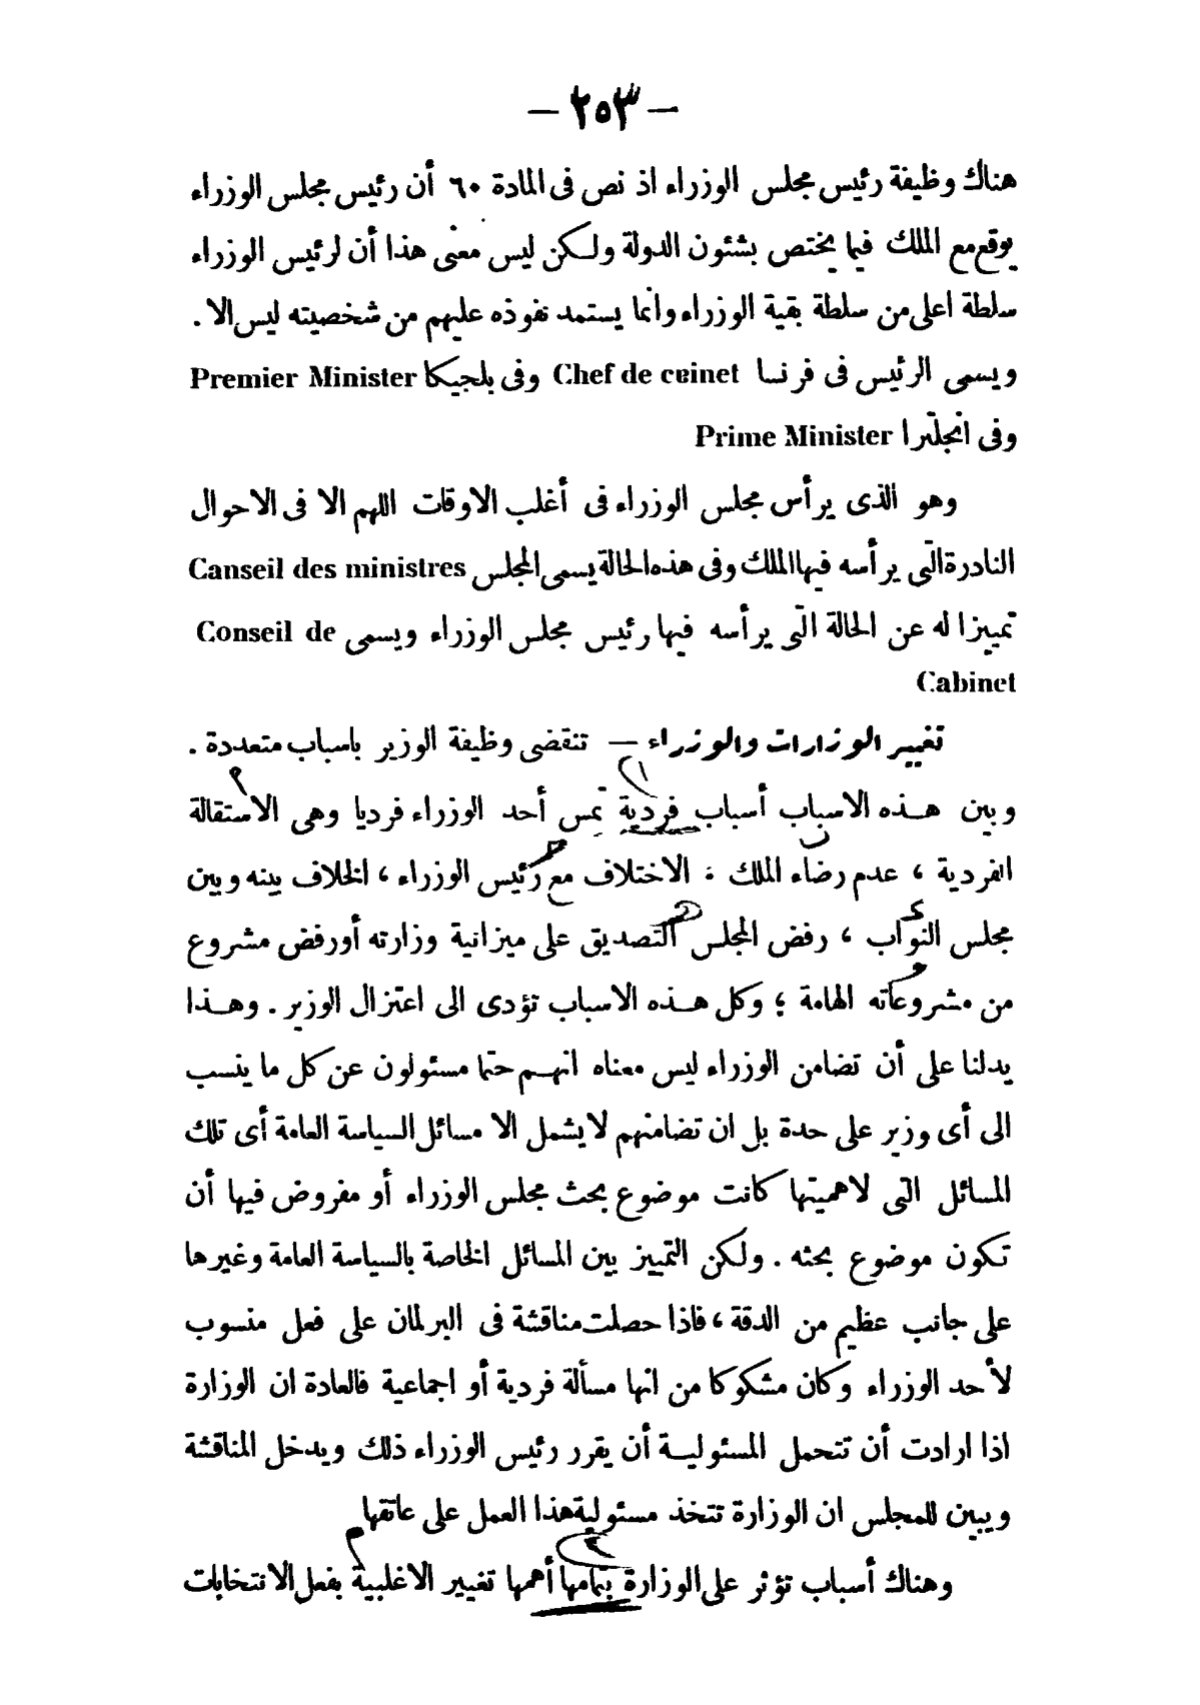 — ٢٥٣ —
هناك وظيفة رئيس مجلس الوزراء اذ نص فى المادة ٦٠ أن رئيس مجلس الوزراء
يوقع مع الملك فيما يختص بشئون الدولة ولكن ليس معنى هذا أن لرئيس الوزراء
سلطة اعلى من سلطة بقية الوزراء وانما يستمد نفوذه عليهم من شخصيته ليس الا .
ويسمى الرئيس فى فرنسا Chef de cainet وفى بلجيكا Premier Minister
وفى انجلترا Prime Minister
وهو الذى يرأس مجلس الوزراء فى أغلب الاوقات اللهم الا فى الاحوال
النادرة التى يرأسه فيها الملك وفى هذه الحالة يسمى المجلس Canseil des ministres
تمييزا له عن الحالة التى يرأسه فيها رئيس مجلس الوزراء ويسمى Conseil de
Cabinet
تغيير الوزارات والوزراء — تنقضى وظيفة الوزير باسباب متعددة .
وبين هذه الاسباب أسباب فردية تمس أحد الوزراء فرديا وهى الاستقالة
الفردية ، عدم رضاء الملك ، الاختلاف مع رئيس الوزراء ، الخلاف بينه وبين
مجلس النواب ، رفض المجلس التصديق على ميزانية وزارته أو رفض مشروع
من مشروعاته الهامة ؛ وكل هذه الاسباب تؤدى الى اعتزال الوزير . وهذا
يدلنا على أن تضامن الوزراء ليس معناه انهم حتما مسئولون عن كل ما ينسب
الى أى وزير على حدة بل ان تضامنهم لا يشمل الا مسائل السياسة العامة أى تلك
المسائل التى لاهميتها كانت موضوع بحث مجلس الوزراء أو مفروض فيها أن
تكون موضوع بحثه . ولكن التمييز بين المسائل الخاصة بالسياسة العامة وغيرها
على جانب عظيم من الدقة ، فاذا حصلت مناقشة فى البرلمان على فعل منسوب
لأحد الوزراء وكان مشكوكا من انها مسألة فردية أو اجماعية فالعادة ان الوزارة
اذا ارادت أن تتحمل المسئولية أن يقرر رئيس الوزراء ذلك ويدخل المناقشة
ويبين للمجلس ان الوزارة تتخذ مسئولية هذا العمل على عاتقها
وهناك أسباب تؤثر على الوزارة بتمامها أهمها تغيير الاغلبية بفعل الانتخابات